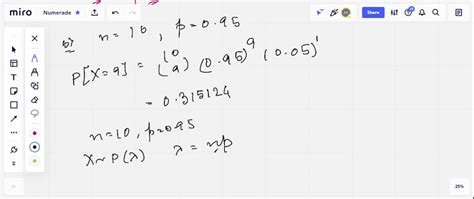 miro
Numerade
Share
b) n = 10, p = 0.95
P[X=9] = (10 9) (0.95)^9 (0.05)^1
= 0.315124
n=10, p=0.95
X~P(λ) λ = np
25%